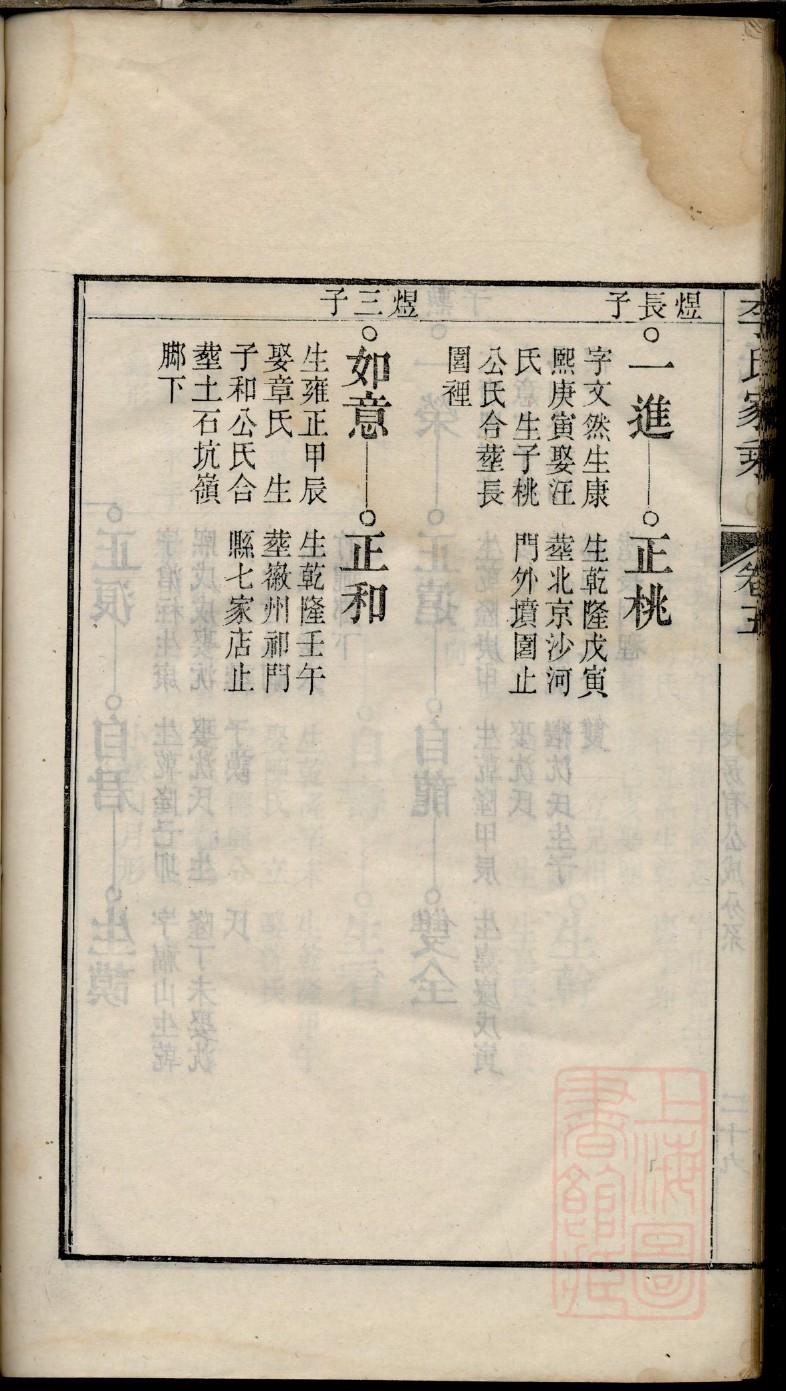 李氏家乘
卷五
煜長子
一進
字文然生康
熙庚寅娶汪
氏　生子桃
公氏合塟長
園裡
正桃
生乾隆戊寅
塟北京沙河
門外墳園止
煜三子
如意
生雍正甲辰
娶章氏　生
子和公氏合
塟土石坑嶺
腳下
正和
生乾隆壬午
塟徽州祁門
縣七家店止
上海圖
書館藏